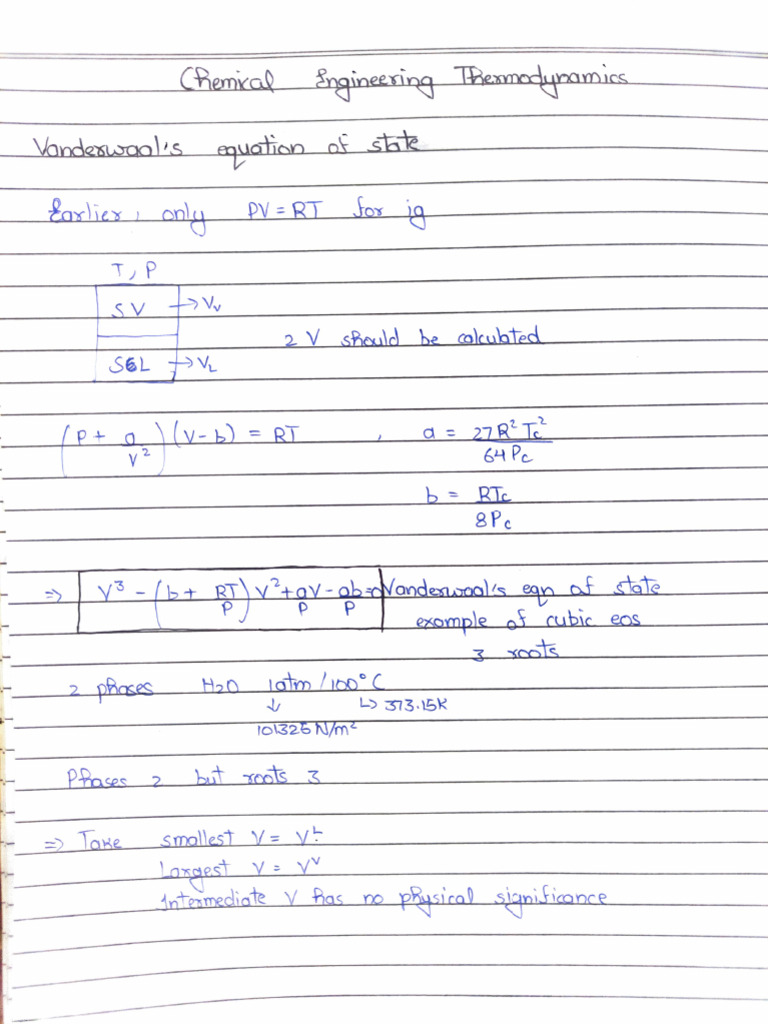 Chemical Engineering Thermodynamics
Vanderwaal's equation of state
Earlier, only PV = RT for ig
T, P
SV → Vv
2 V should be calculated
SCL → VL
(P + a/V²)(V-b) = RT , a = 27R²Tc²/64Pc
b = RTc/8Pc
⇒ V³ - (b + RT/P)V² + aV/P - ab/P = 0 Vanderwaal's eqn of state
example of cubic eos
3 roots
2 phases H2O 1atm / 100°C
↓ ↳ 373.15K
101325 N/m²
Phases 2 but roots 3
⇒ Take smallest V = V^L
Largest V = V^V
Intermediate V has no physical significance